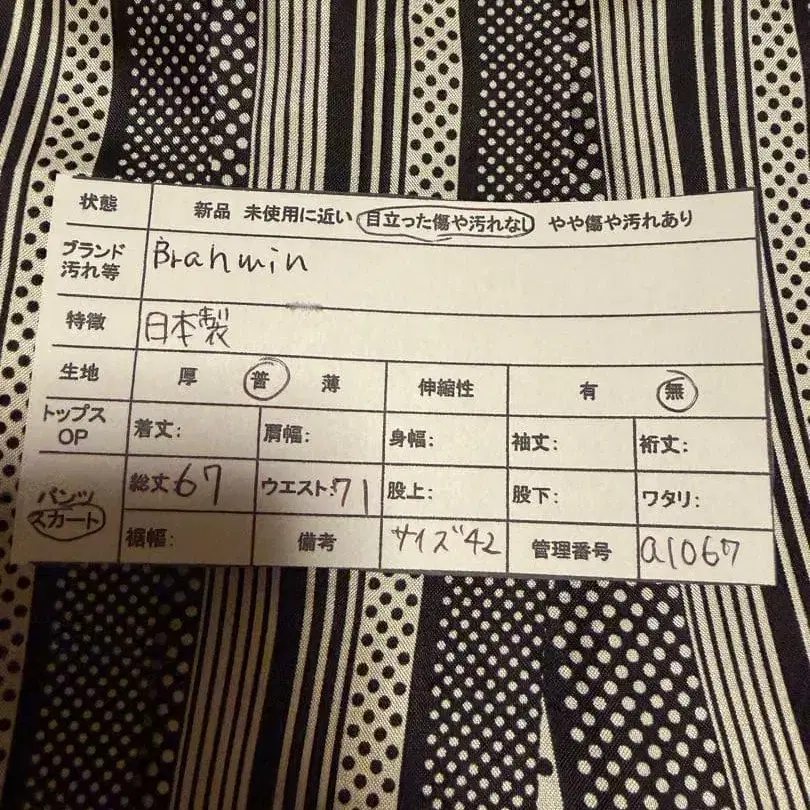 状態 新品 未使用に近い 目立った傷や汚れなし やや傷や汚れあり
ブランド Brahmin
汚れ等
特徴 日本製
生地 厚 普 薄 伸縮性 有 無
トップス OP 着丈: 肩幅: 身幅: 袖丈: 裄丈:
パンツ スカート 総丈67 ウエスト:71 股上: 股下: ワタリ:
裾幅: 備考 サイズ42 管理番号 a1067